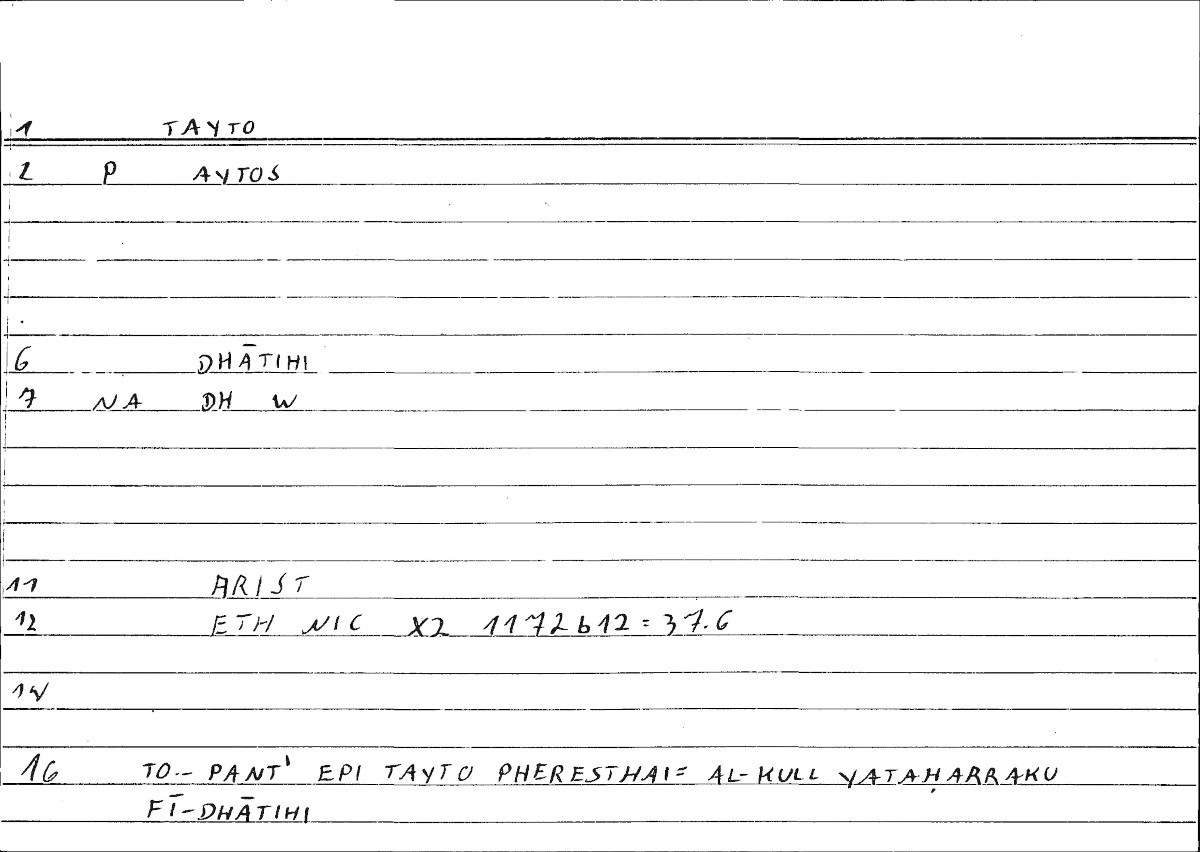 1 TAYTO
2 P AYTOS
6 DHĀTIHI
7 NA DH W
11 ARIST
12 ETH NIC X2 1172b12=37.6
14
16 TO.- PANT' EPI TAYTO PHERESTHAI= AL-KULL YATAḤARRAKU
FĪ-DHĀTIHI